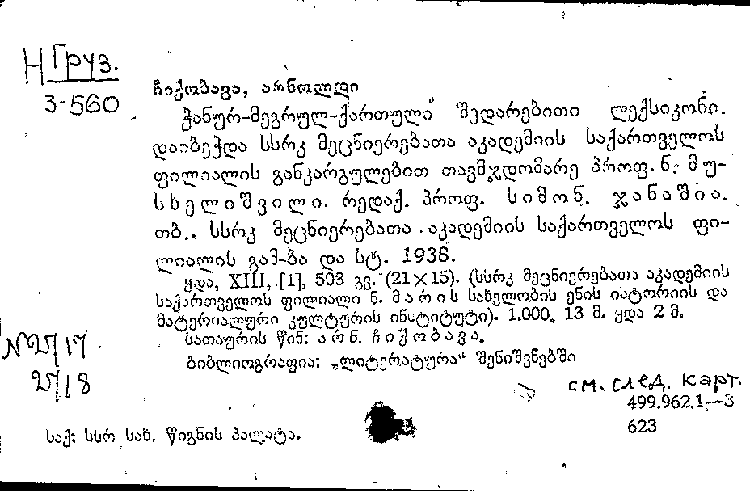 Н Груз.
3-560
ჩიქობავა, არნოლდი
ჭანურ-მეგრულ-ქართული შედარებითი ლექსიკონი.
დაიბეჭდა სსრკ მეცნიერებათა აკადემიის საქართველოს
ფილიალის განკარგულებით თავმჯდომარე პროფ. ნ. მუ-
სხელიშვილი. რედაქ. პროფ. სიმონ. ჯანაშია.
თბ., სსრკ მეცნიერებათა აკადემიის საქართველოს ფი-
ლიალის გამ-ბა და სტ. 1938.
ყდა, XIII, [1], 503 გვ. (21×15). (სსრკ მეცნიერებათა აკადემიის
საქართველოს ფილიალი ნ. მარის სახელობის ენის ისტორიის და
მატერიალური კულტურის ინსტიტუტი). 1.000. 13 მ. ყდა 2 მ.
სათაურის წინ: არნ. ჩიქობავა.
ბიბლიოგრაფია: „ლიტერატურა“ შენიშვნებში
N 2717
2718
см. след. карт.
499.962.1—3
623
საქ. სსრ სახ. წიგნის პალატა.